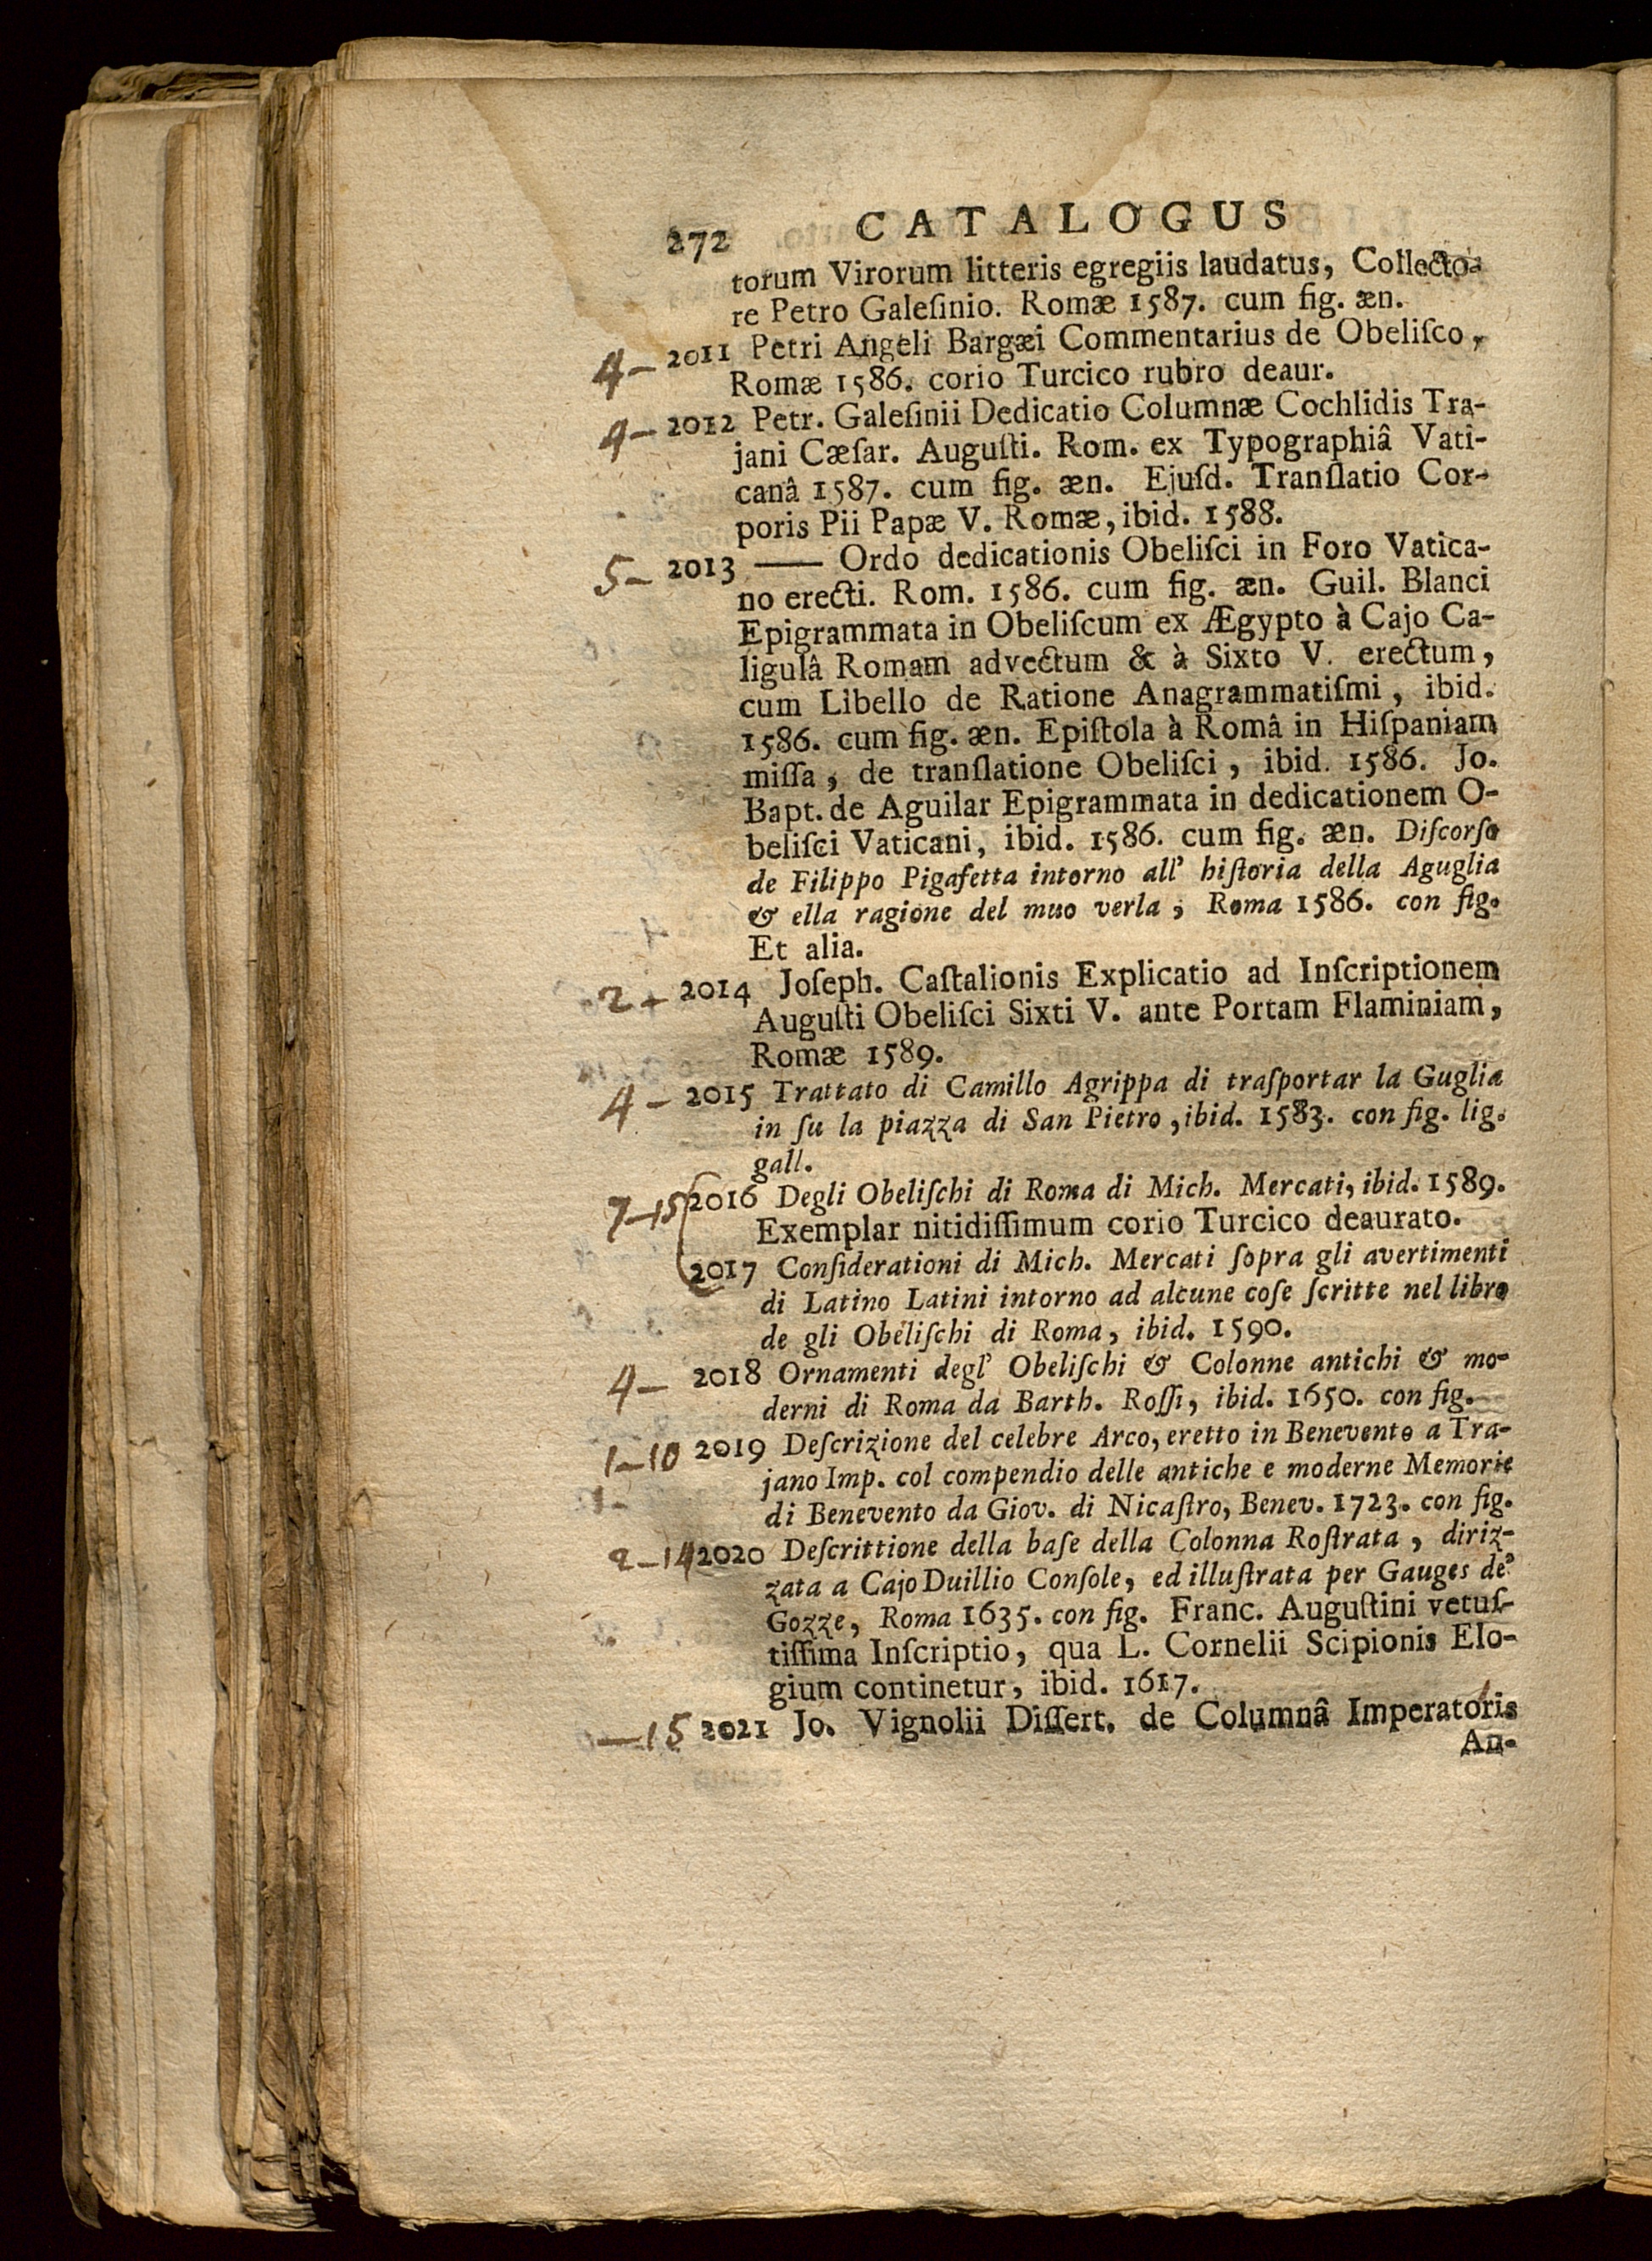 272 CATALOGUS
torum Virorum litteris egregiis laudatus, Collecto-
re Petro Galeſinio. Romæ 1587. cum fig. æn.
4- 2011 Petri Angeli Bargæi Commentarius de Obeliſco,
Romæ 1586. corio Turcico rubro deaur.
4- 2012 Petr. Galeſinii Dedicatio Columnæ Cochlidis Tra-
jani Cæſar. Auguſti. Rom. ex Typographiâ Vati-
canâ 1587. cum fig. æn. Ejuſd. Tranſlatio Cor-
poris Pii Papæ V. Romæ, ibid. 1588.
5- 2013 —— Ordo dedicationis Obeliſci in Foro Vatica-
no erecti. Rom. 1586. cum fig. æn. Guil. Blanci
Epigrammata in Obeliſcum ex Ægypto à Cajo Ca-
ligulâ Romam advectum & à Sixto V. erectum,
cum Libello de Ratione Anagrammatiſmi, ibid.
1586. cum fig. æn. Epiſtola à Româ in Hiſpaniam
miſſa, de tranſlatione Obeliſci, ibid. 1586. Jo.
Bapt. de Aguilar Epigrammata in dedicationem O-
beliſci Vaticani, ibid. 1586. cum fig. æn. Diſcorſo
de Filippo Pigafetta intorno all' hiſtoria della Aguglia
& ella ragione del muo verla, Roma 1586. con fig.
Et alia.
2- 2014 Joſeph. Caſtalionis Explicatio ad Inſcriptionem
Auguſti Obeliſci Sixti V. ante Portam Flaminiam,
Romæ 1589.
4- 2015 Trattato di Camillo Agrippa di traſportar la Guglia
in ſu la piazza di San Pietro, ibid. 1583. con fig. lig.
gall.
7-15 2016 Degli Obeliſchi di Roma di Mich. Mercati, ibid. 1589.
Exemplar nitidiſſimum corio Turcico deaurato.
2017 Conſiderationi di Mich. Mercati ſopra gli avertimenti
di Latino Latini intorno ad alcune coſe ſcritte nel libro
de gli Obeliſchi di Roma, ibid. 1590.
4- 2018 Ornamenti degl' Obeliſchi & Colonne antichi & mo-
derni di Roma da Barth. Roſſi, ibid. 1650. con fig.
1-10 2019 Deſcrizione del celebre Arco, eretto in Benevento a Tra-
jano Imp. col compendio delle antiche e moderne Memorie
di Benevento da Giov. di Nicaſtro, Benev. 1723. con fig.
2-14 2020 Deſcrittione della baſe della Colonna Roſtrata, diriz-
zata a Cajo Duillio Conſole, ed illuſtrata per Gauges de'
Gozze, Roma 1635. con fig. Franc. Auguſtini vetuſ-
tiſſima Inſcriptio, qua L. Cornelii Scipionis Elo-
gium continetur, ibid. 1617.
-15 2021 Jo. Vignolii Diſſert. de Columnâ Imperatoris
An-